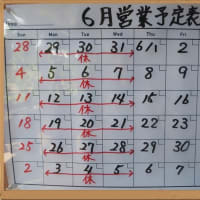 6月営業予定表
Sun Mon Tue Wed Thu Fri
28 29 30 31 6/1 2
休
4 5 6 7 8 9
休
11 12 13 14 15 16
休
18 19 20 21 22 23
休
25 26 27 28 29 30
休
2 3 4 5 6 7
休